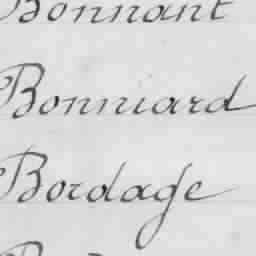 Bonnant
Bonniard
Bordage